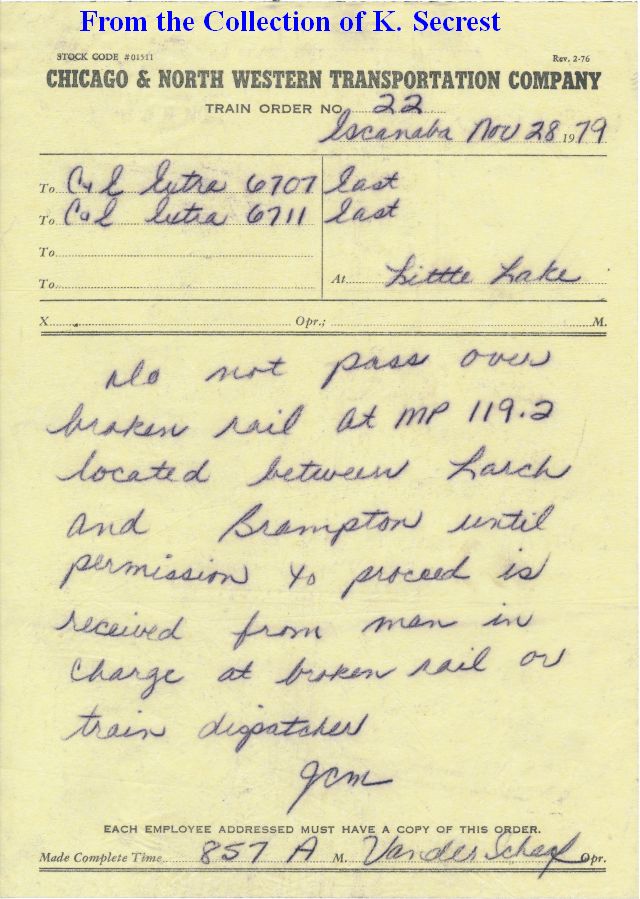 From the Collection of K. Secrest
STOCK CODE #01511 Rev. 2-76
CHICAGO & NORTH WESTERN TRANSPORTATION COMPANY
TRAIN ORDER NO. 22
Escanaba Nov 28 1979
To C&E Extra 6707 East
To C&E Extra 6711 East
To
To At Little Lake
X Opr.; M.
Do not pass over
broken rail at MP 119.2
located between Larch
and Brampton until
permission to proceed is
received from man in
charge at broken rail or
train dispatcher
JCM
EACH EMPLOYEE ADDRESSED MUST HAVE A COPY OF THIS ORDER.
Made Complete Time 857 A M. Vander Schaaf Opr.